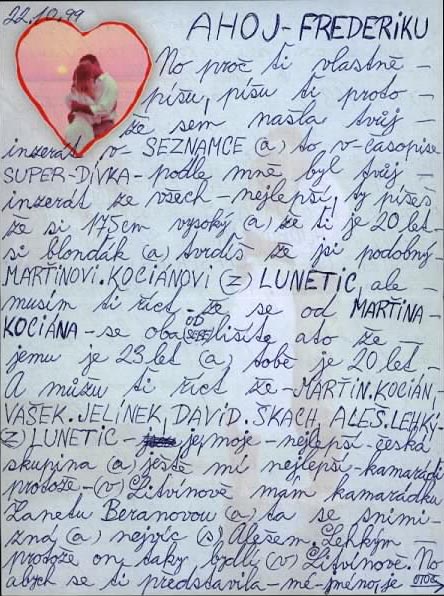 22.10.99
AHOJ-FREDERIKU
No proč ti vlastně -
píšu, píšu ti proto -
že sem našla tvůj -
inzerát v- SEZNAMCE (a) to, v-časopise
SUPER-DÍVKA- podle mně byl tvůj -
inzerát ze všech - nejlepší, ty píšeš
že si 175cm vysoký (a) že ti je 20 let-
si blonďák (a) tvrdíš že jsi podobný-
MARTINOVI.KOCIÁNOVI (Z) LUNETIC, ale -
musím ti říct - že se od MARTINA-
KOCIÁNA - se oba OD SEBE lišíte ato že -
jemu je 23 let (a) tobě je 20 let -
A můžu ti říct že - MARTIN.KOCIÁN,
VAŠEK.JELÍNEK, DAVID.ŠKACH, ALEŠ.LEHKÝ-
(Z) LUNETIC - je moje - nejlepší - česká
skupina (a) ještě mí nejlepší - kamarádi
protože - (v) Litvínově mám kamarádku
Žanetu Beranovou (a) ta se snimi-
zná (a) nejvíc (s) Alešem. Lehkým -
protože on taky bydlí (v) Litvínově. No
abych se ti představila - mé-jméno, je OTOČ